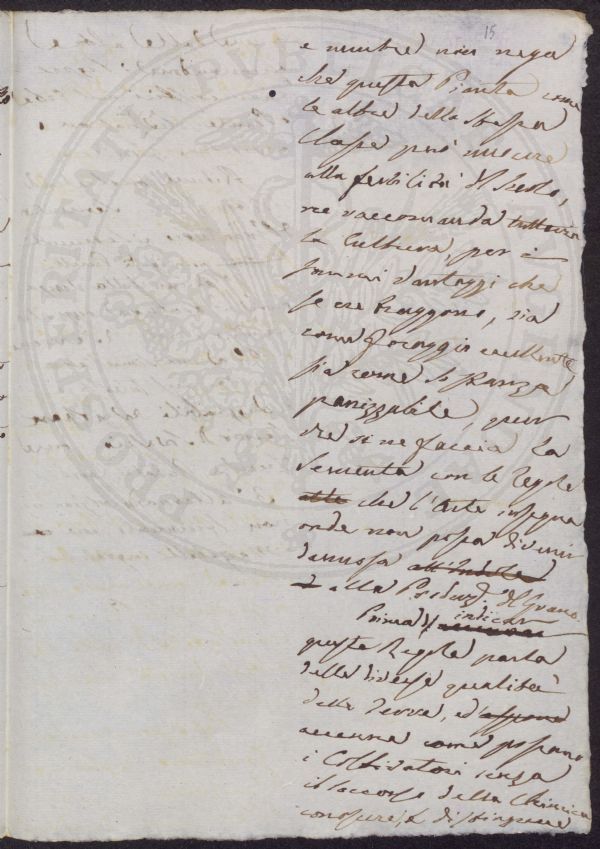 15
e mentre non nega
che questa Pianta come
le altre della stessa
Classe può nuocere
alla fertilità del Suolo,
ne raccomanda tuttavia
la Cultura, per i
vantaggi che
se ne traggono, sia
come foraggio eccellente
sia come sostanza
panizzabile, pur
che si ne faccia la
Sementa con le regole
che l'Arte insegna
onde non possa divenir
dannosa
alla Produz. del Grano.
Prima d' indicar
queste Regole parla
delle diverse qualità
della Terra, ed
accenna come possano
i Coltivatori senza
il soccorso della Chimica
conoscere, e distinguere